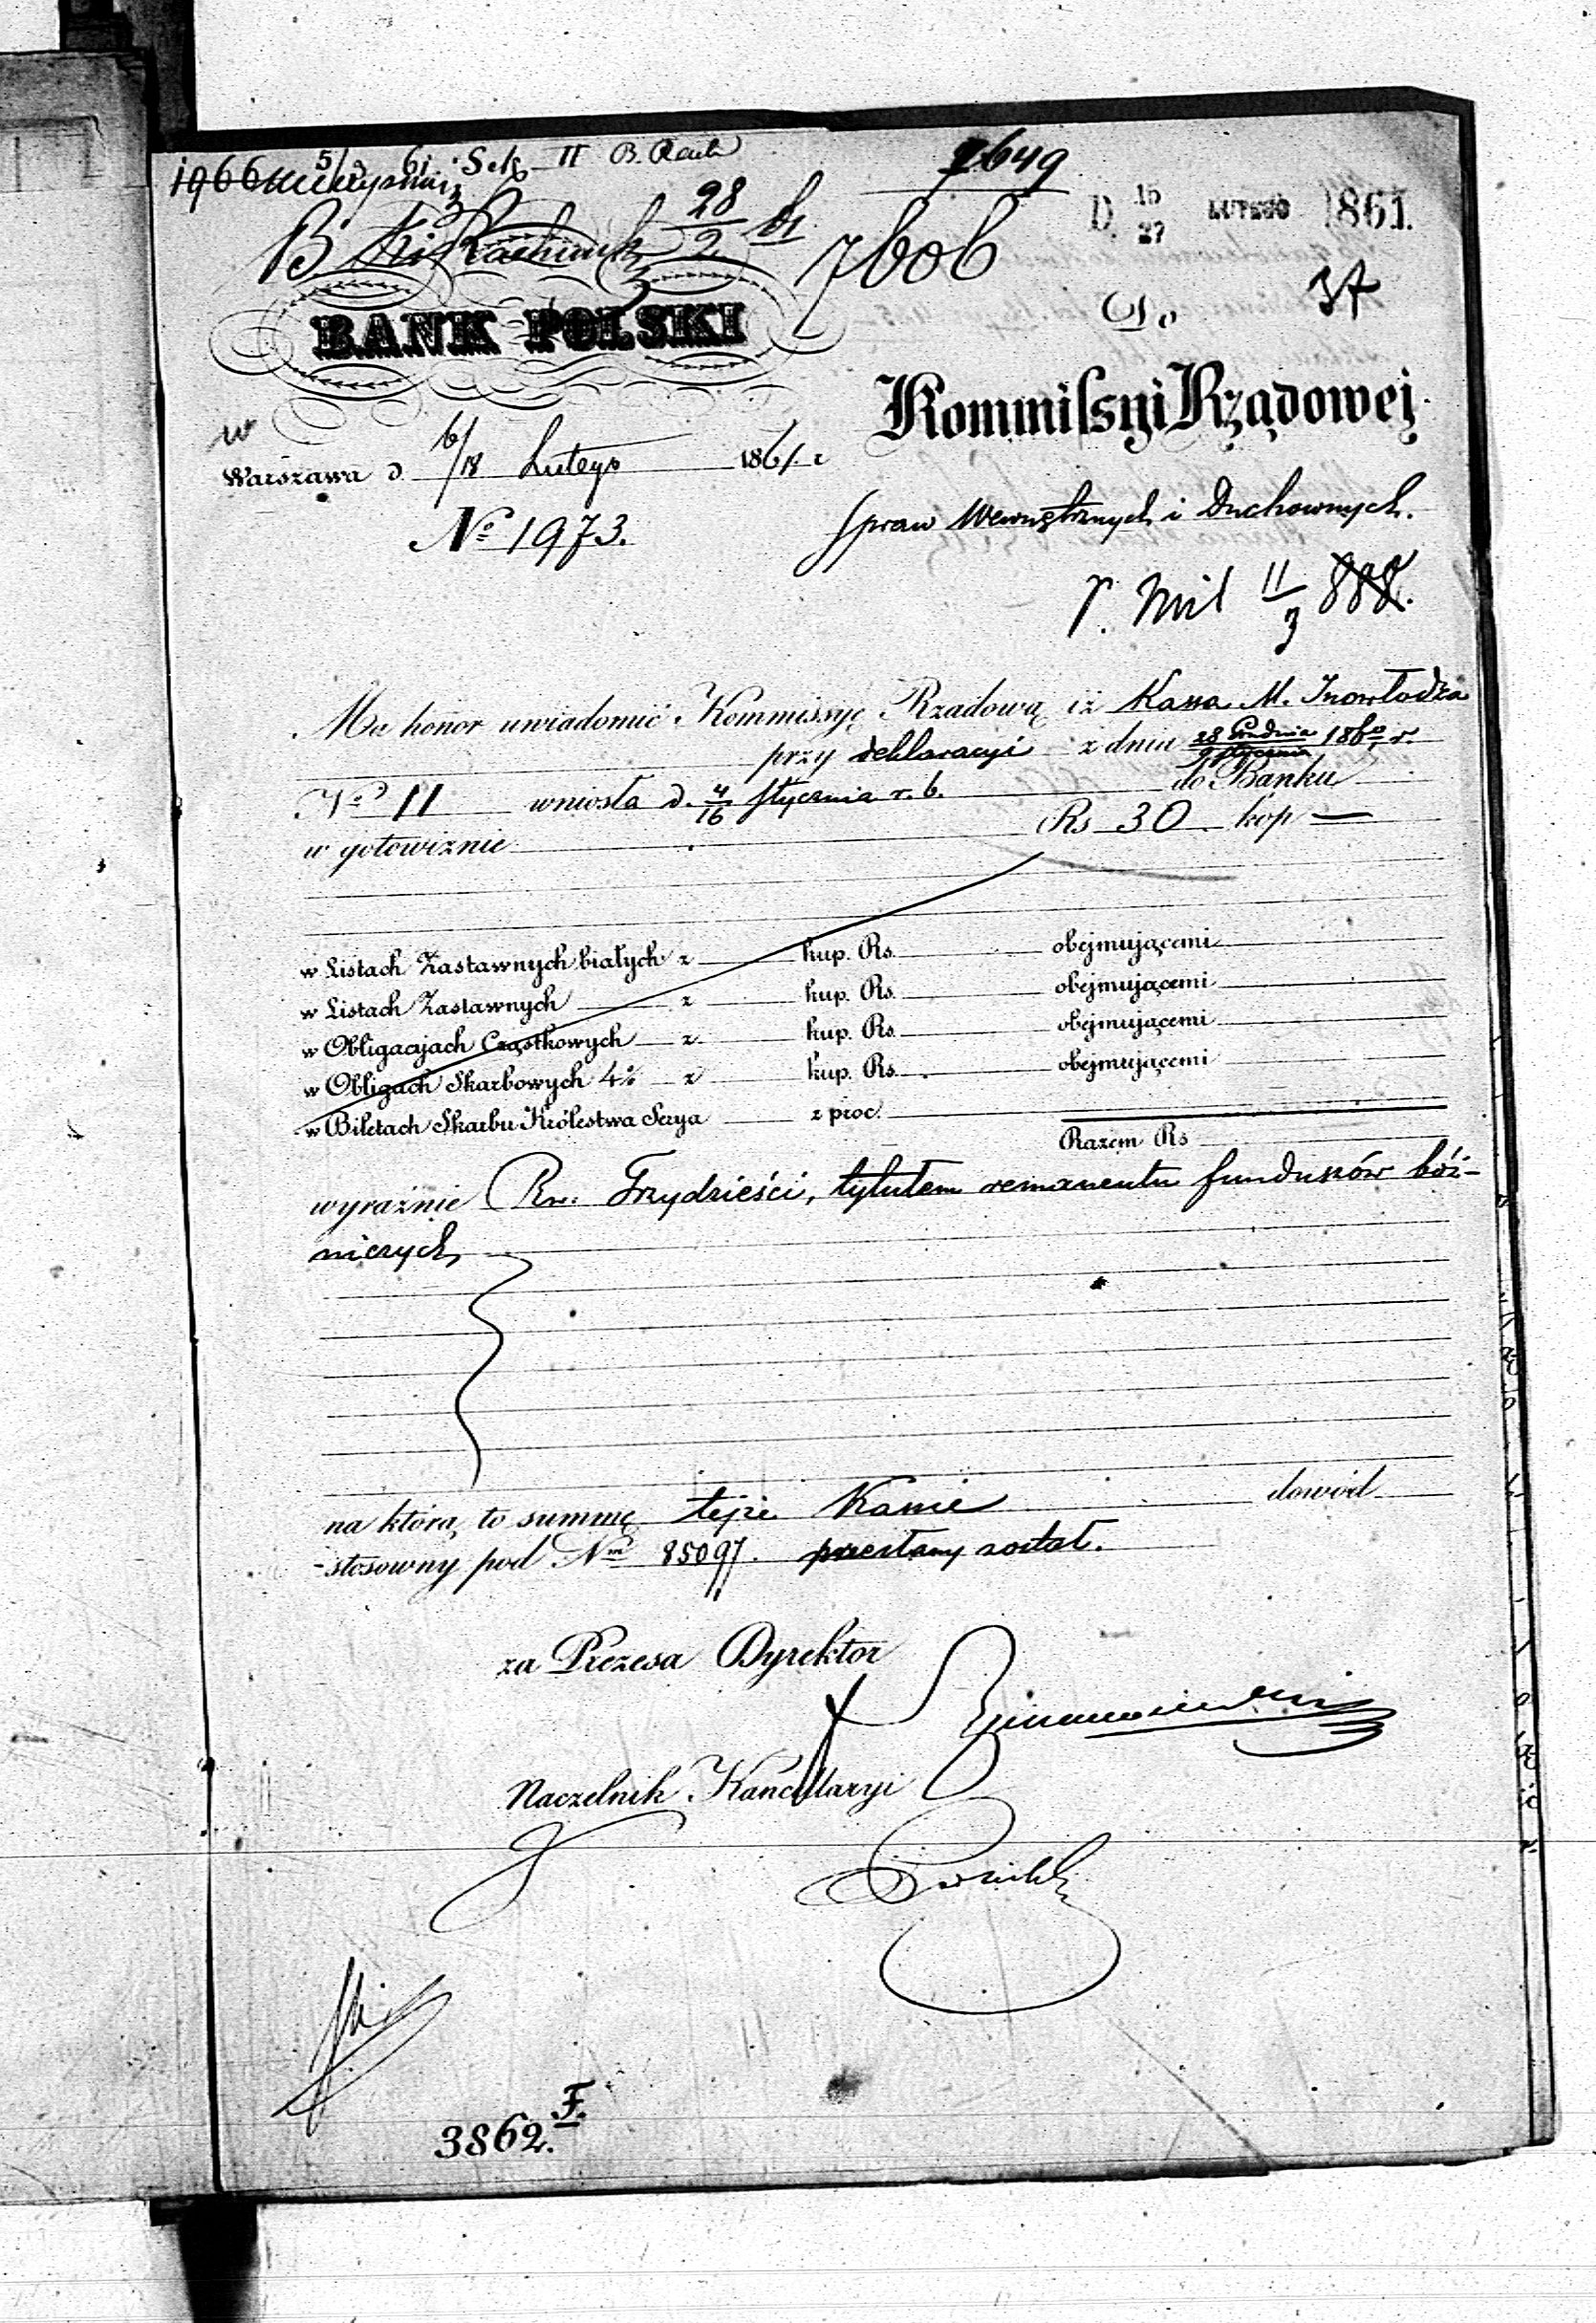 5/3 61 Sek II B. Rach
7649
28/2 61
7606
D. 15/27 LUTEGO 1861.
37
BANK POLSKI
Do
Kommissyi Rządowej
w
Warszawa d. 6/18 Lutego 1861. r
Spraw Wewnętrznych i Duchownych.
No 1973.
11/3 888.
Ma honor uwiadomić Kommissyę Rządową iż Kassa M. Inowłodza
przy deklaracyi z dnia 28 Grudnia/9 Stycznia 1860/1 r.
No 11 wniosła d. 4/16 Stycznia r. b. do Banku
w gotowiznie Rs 30 kop —
w Listach Zastawnych białych z kup. Rs. obejmującemi
w Listach Zastawnych z kup. Rs. obejmującemi
w Obligacyjach Cząstkowych z kup. Rs. obejmującemi
w Obligach Skarbowych 4% z kup. Rs. obejmującemi
w Biletach Skarbu Królestwa Serya z proc.
Razem Rs
wyraźnie Rs. Trzydzieści, tytułem remanentu funduszów bóż-
niczych
na którą to summę tejże Kassie dowód
stosowny pod Nm 85097. przesłany został.
za Prezesa Dyrektor
Naczelnik Kancellaryi
3862. F.